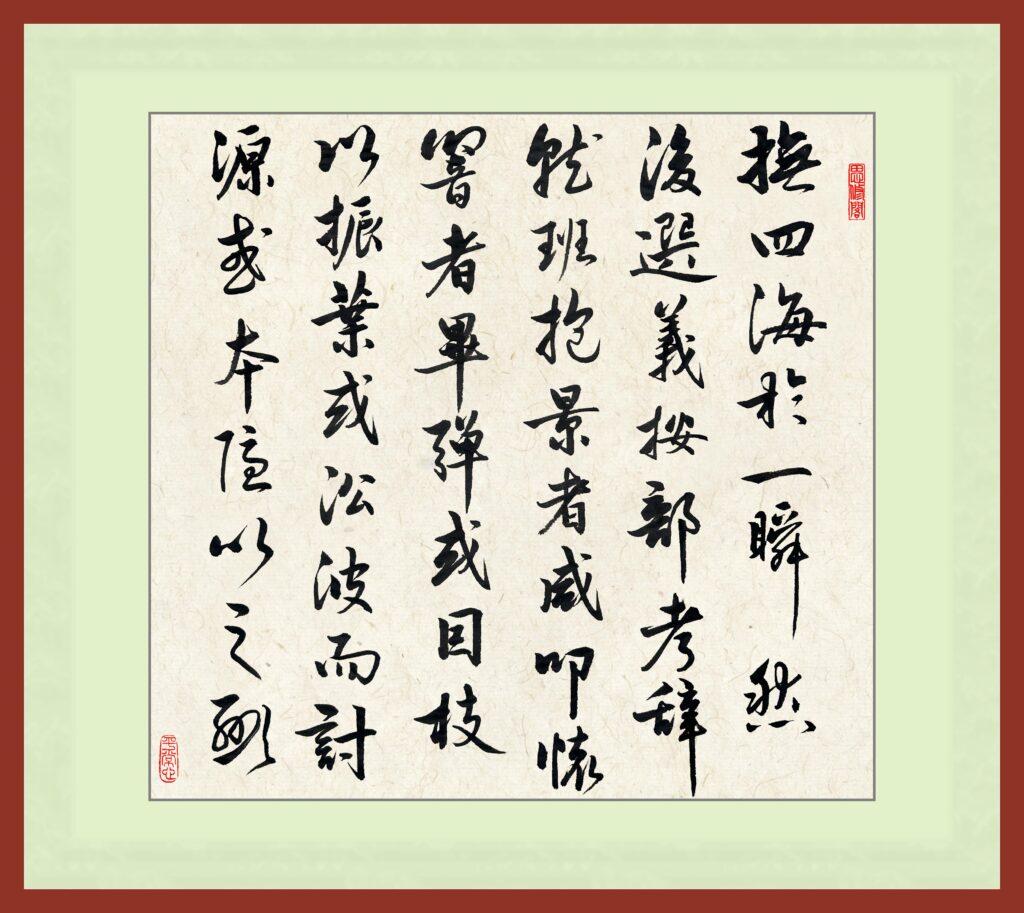 思修閣
撫四海於一瞬然
後選義按部考辭
就班抱景者咸叩懷
響者畢彈或因枝
以振葉或沿波而討
源或本隱以之顯
平常心